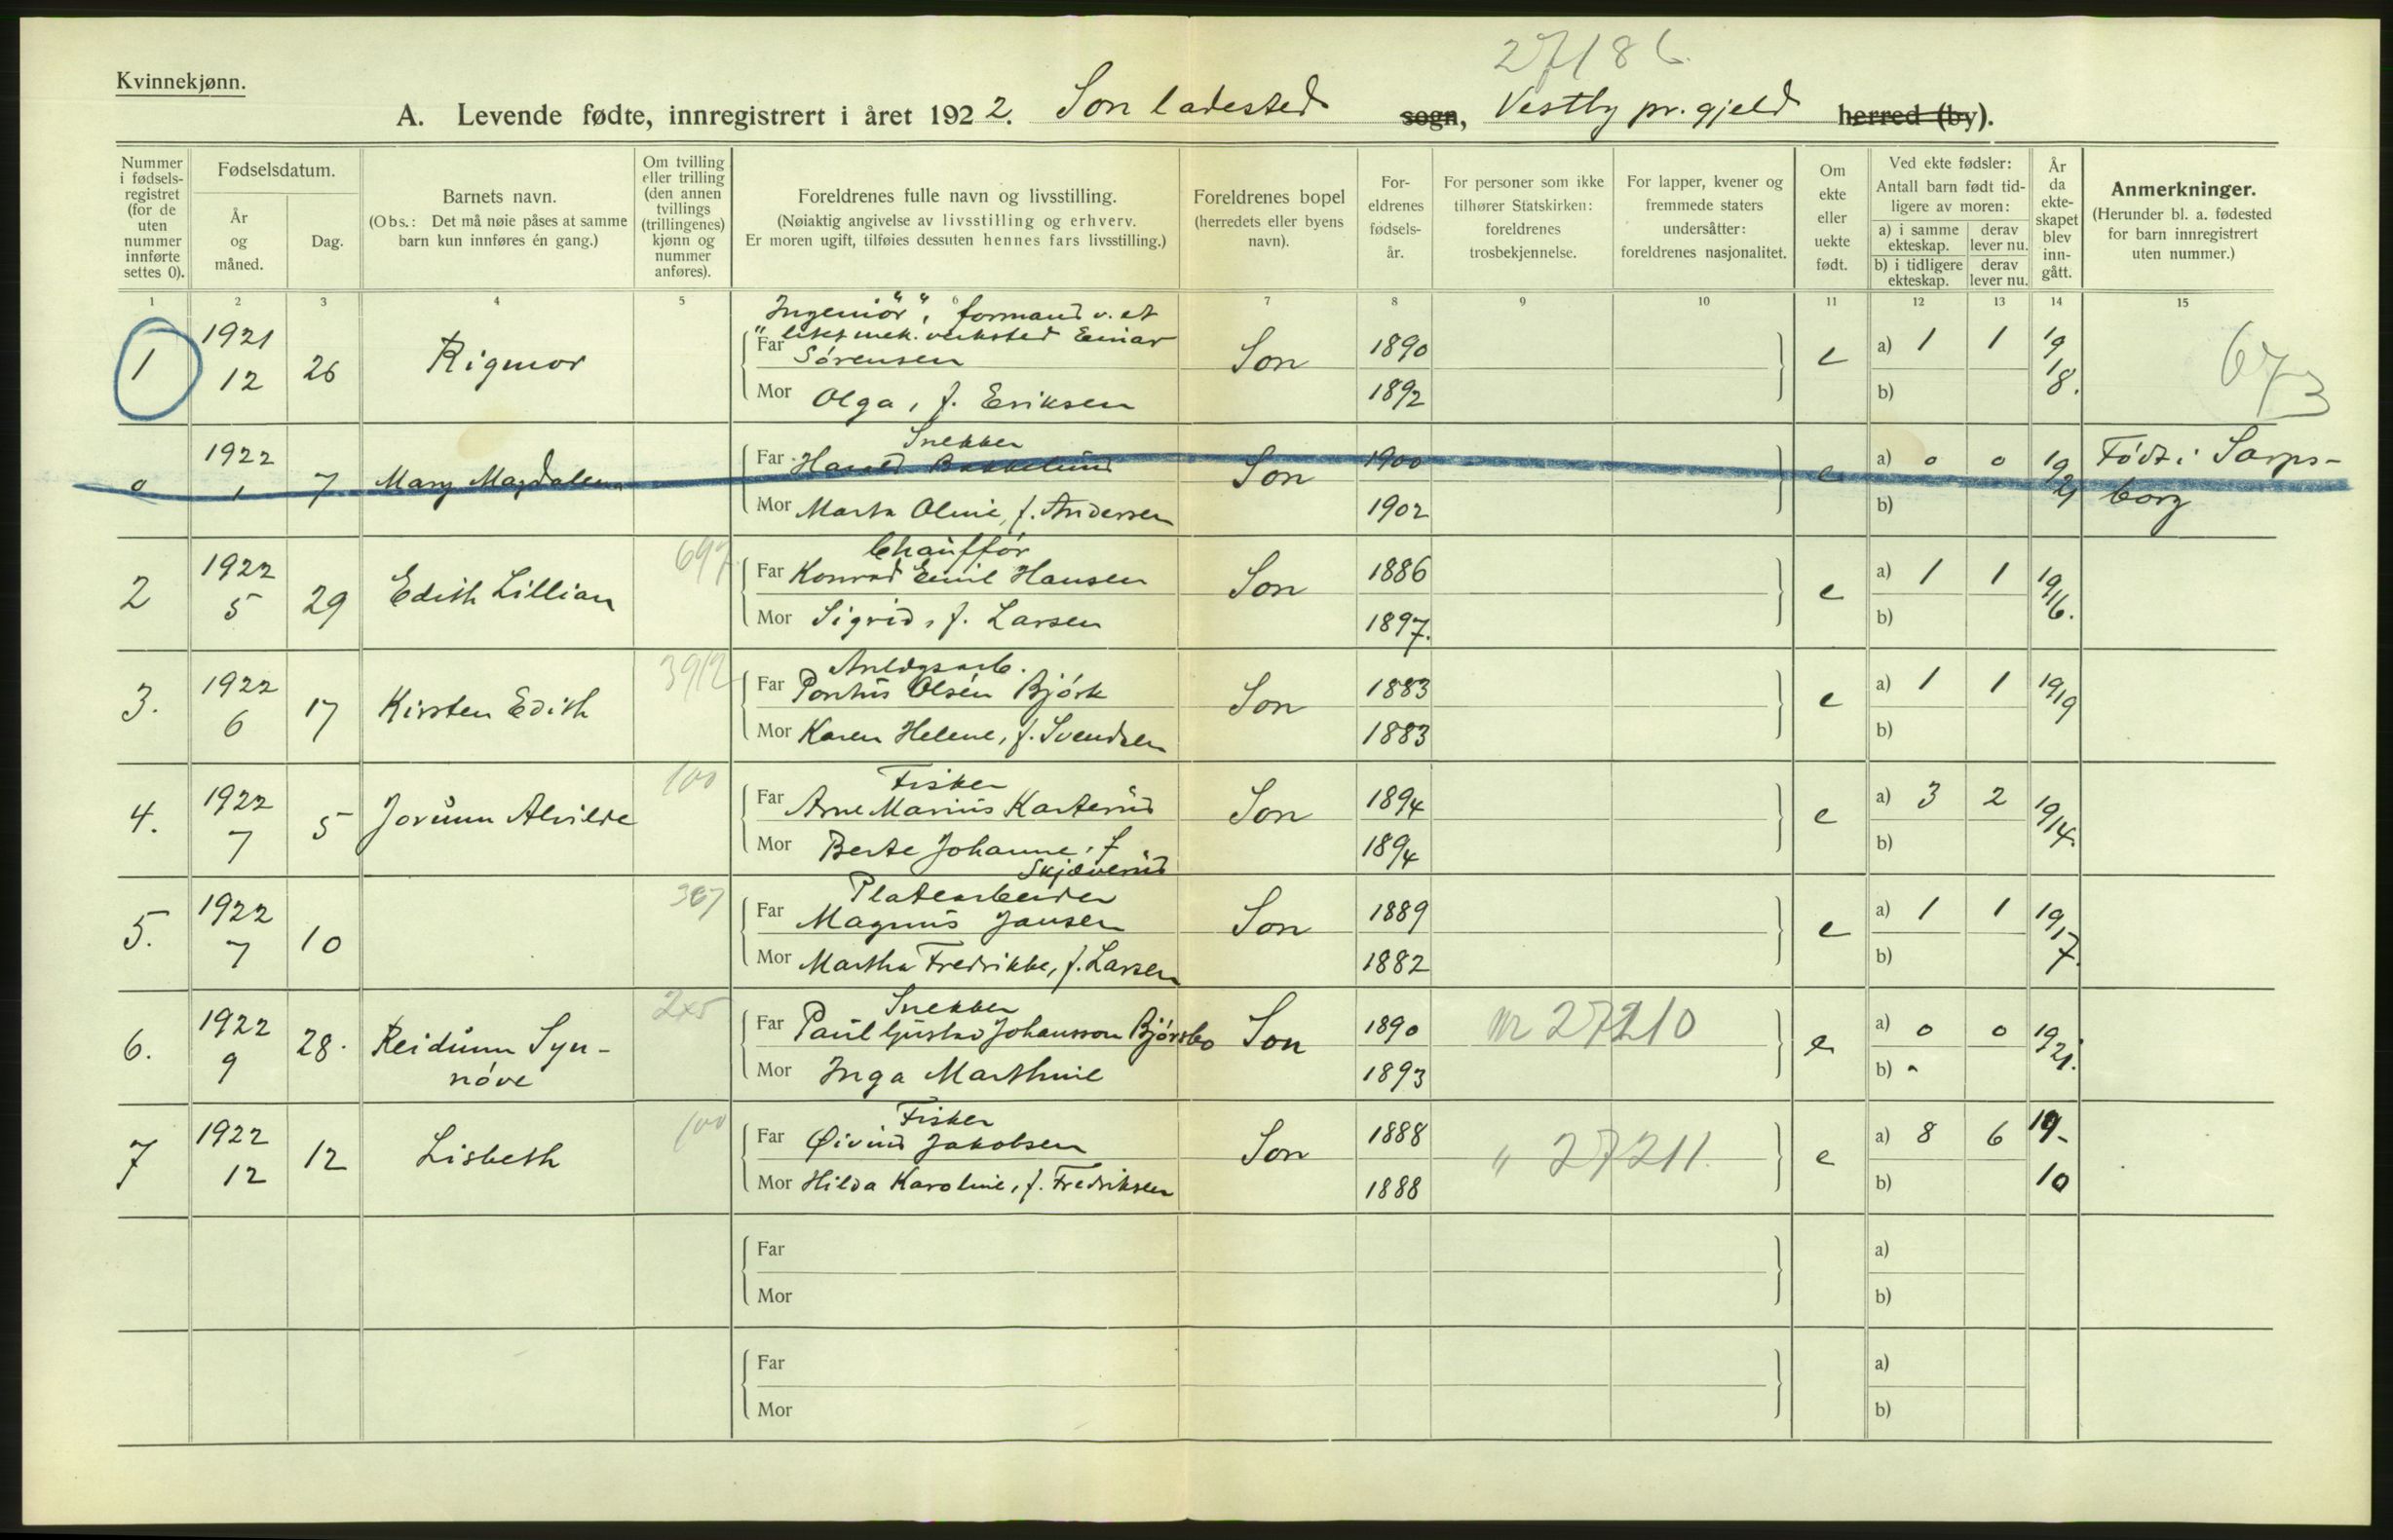 27186.
Kvinnekjønn.
A. Levende fødte, innregistrert i året 1922. Son ladested sogn, Vestby pr.gjeld herred (by).
Nummer i fødsels-registret (for de uten nummer innførte settes 0).
Fødselsdatum.
År og måned.
Dag.
Barnets navn.
(Obs.: Det må nøie påses at samme barn kun innføres én gang.)
Om tvilling eller trilling (den annen tvillings (trillingenes) kjønn og nummer anføres).
Foreldrenes fulle navn og livsstilling.
(Nøiaktig angivelse av livsstilling og erhverv.
Er moren ugift, tilføies dessuten hennes fars livsstilling.)
Foreldrenes bopel (herredets eller byens navn).
For-eldrenes fødsels-år.
For personer som ikke tilhører Statskirken: foreldrenes trosbekjennelse.
For lapper, kvener og fremmede staters undersåtter: foreldrenes nasjonalitet.
Om ekte eller uekte født.
Ved ekte fødsler:
Antall barn født tid-ligere av moren:
a) i samme ekteskap.
derav lever nu.
b) i tidligere ekteskap.
derav lever nu.
År da ekte-skapet blev inn-gått.
Anmerkninger.
(Herunder bl. a. fødested for barn innregistrert uten nummer.)
1 2 3 4 5 6 7 8 9 10 11 12 13 14 15
1 1921 12 26 Rigmor
Ingeniör, formand v. et
mek. verksted Einar
Far Sörensen Son 1890 e a) 1 1 19/18. 673
Mor Olga, f. Eriksen 1892 b)
0 1922 1 7 Mary Magdalena
Snekker
Far Harald Bakkelund Son 1900 e a) 0 0 19/21 Födt i Sarps-
Mor Marta Oline, f. Andersen 1902 b) borg
2 1922 5 29 Edith Lillian 697
Chaufför
Far Konrad Emil Hansen Son 1886 e a) 1 1 19/16.
Mor Sigrid, f. Larsen 1897. b)
3. 1922 6 17 Kirsten Edith 3912
Anlægsarb.
Far Pontus Olsén Björk Son 1883 e a) 1 1 19/19
Mor Karen Helene, f. Svendsen 1883 b)
4. 1922 7 5 Jorunn Alvilde 100
Fisker
Far Arne Marius Karterud Son 1894 e a) 3 2 19/14.
Mor Berte Johanne, f. 1894 b)
Skjæverud
5. 1922 7 10 367
Platearbeider
Far Magnus Jansen Son 1889 e a) 1 1 19/17.
Mor Martha Fredrikke, f. Larsen 1882 b)
6. 1922 9 28. Reidunn Syn-
növe 2x5
Snekker
Far Paul Gustav Johansson Björsbo Son 1890 nr 27210 e a) 0 0 19/21.
Mor Inga Marthine 1893 b)
7 1922 12 12 Lisbeth 100
Fisker
Far Øivind Jakobsen Son 1888 " 27211. e a) 8 6 19-
Mor Hilda Karoline, f. Fredriksen 1888 b) 10
Far a)
Mor b)
Far a)
Mor b)